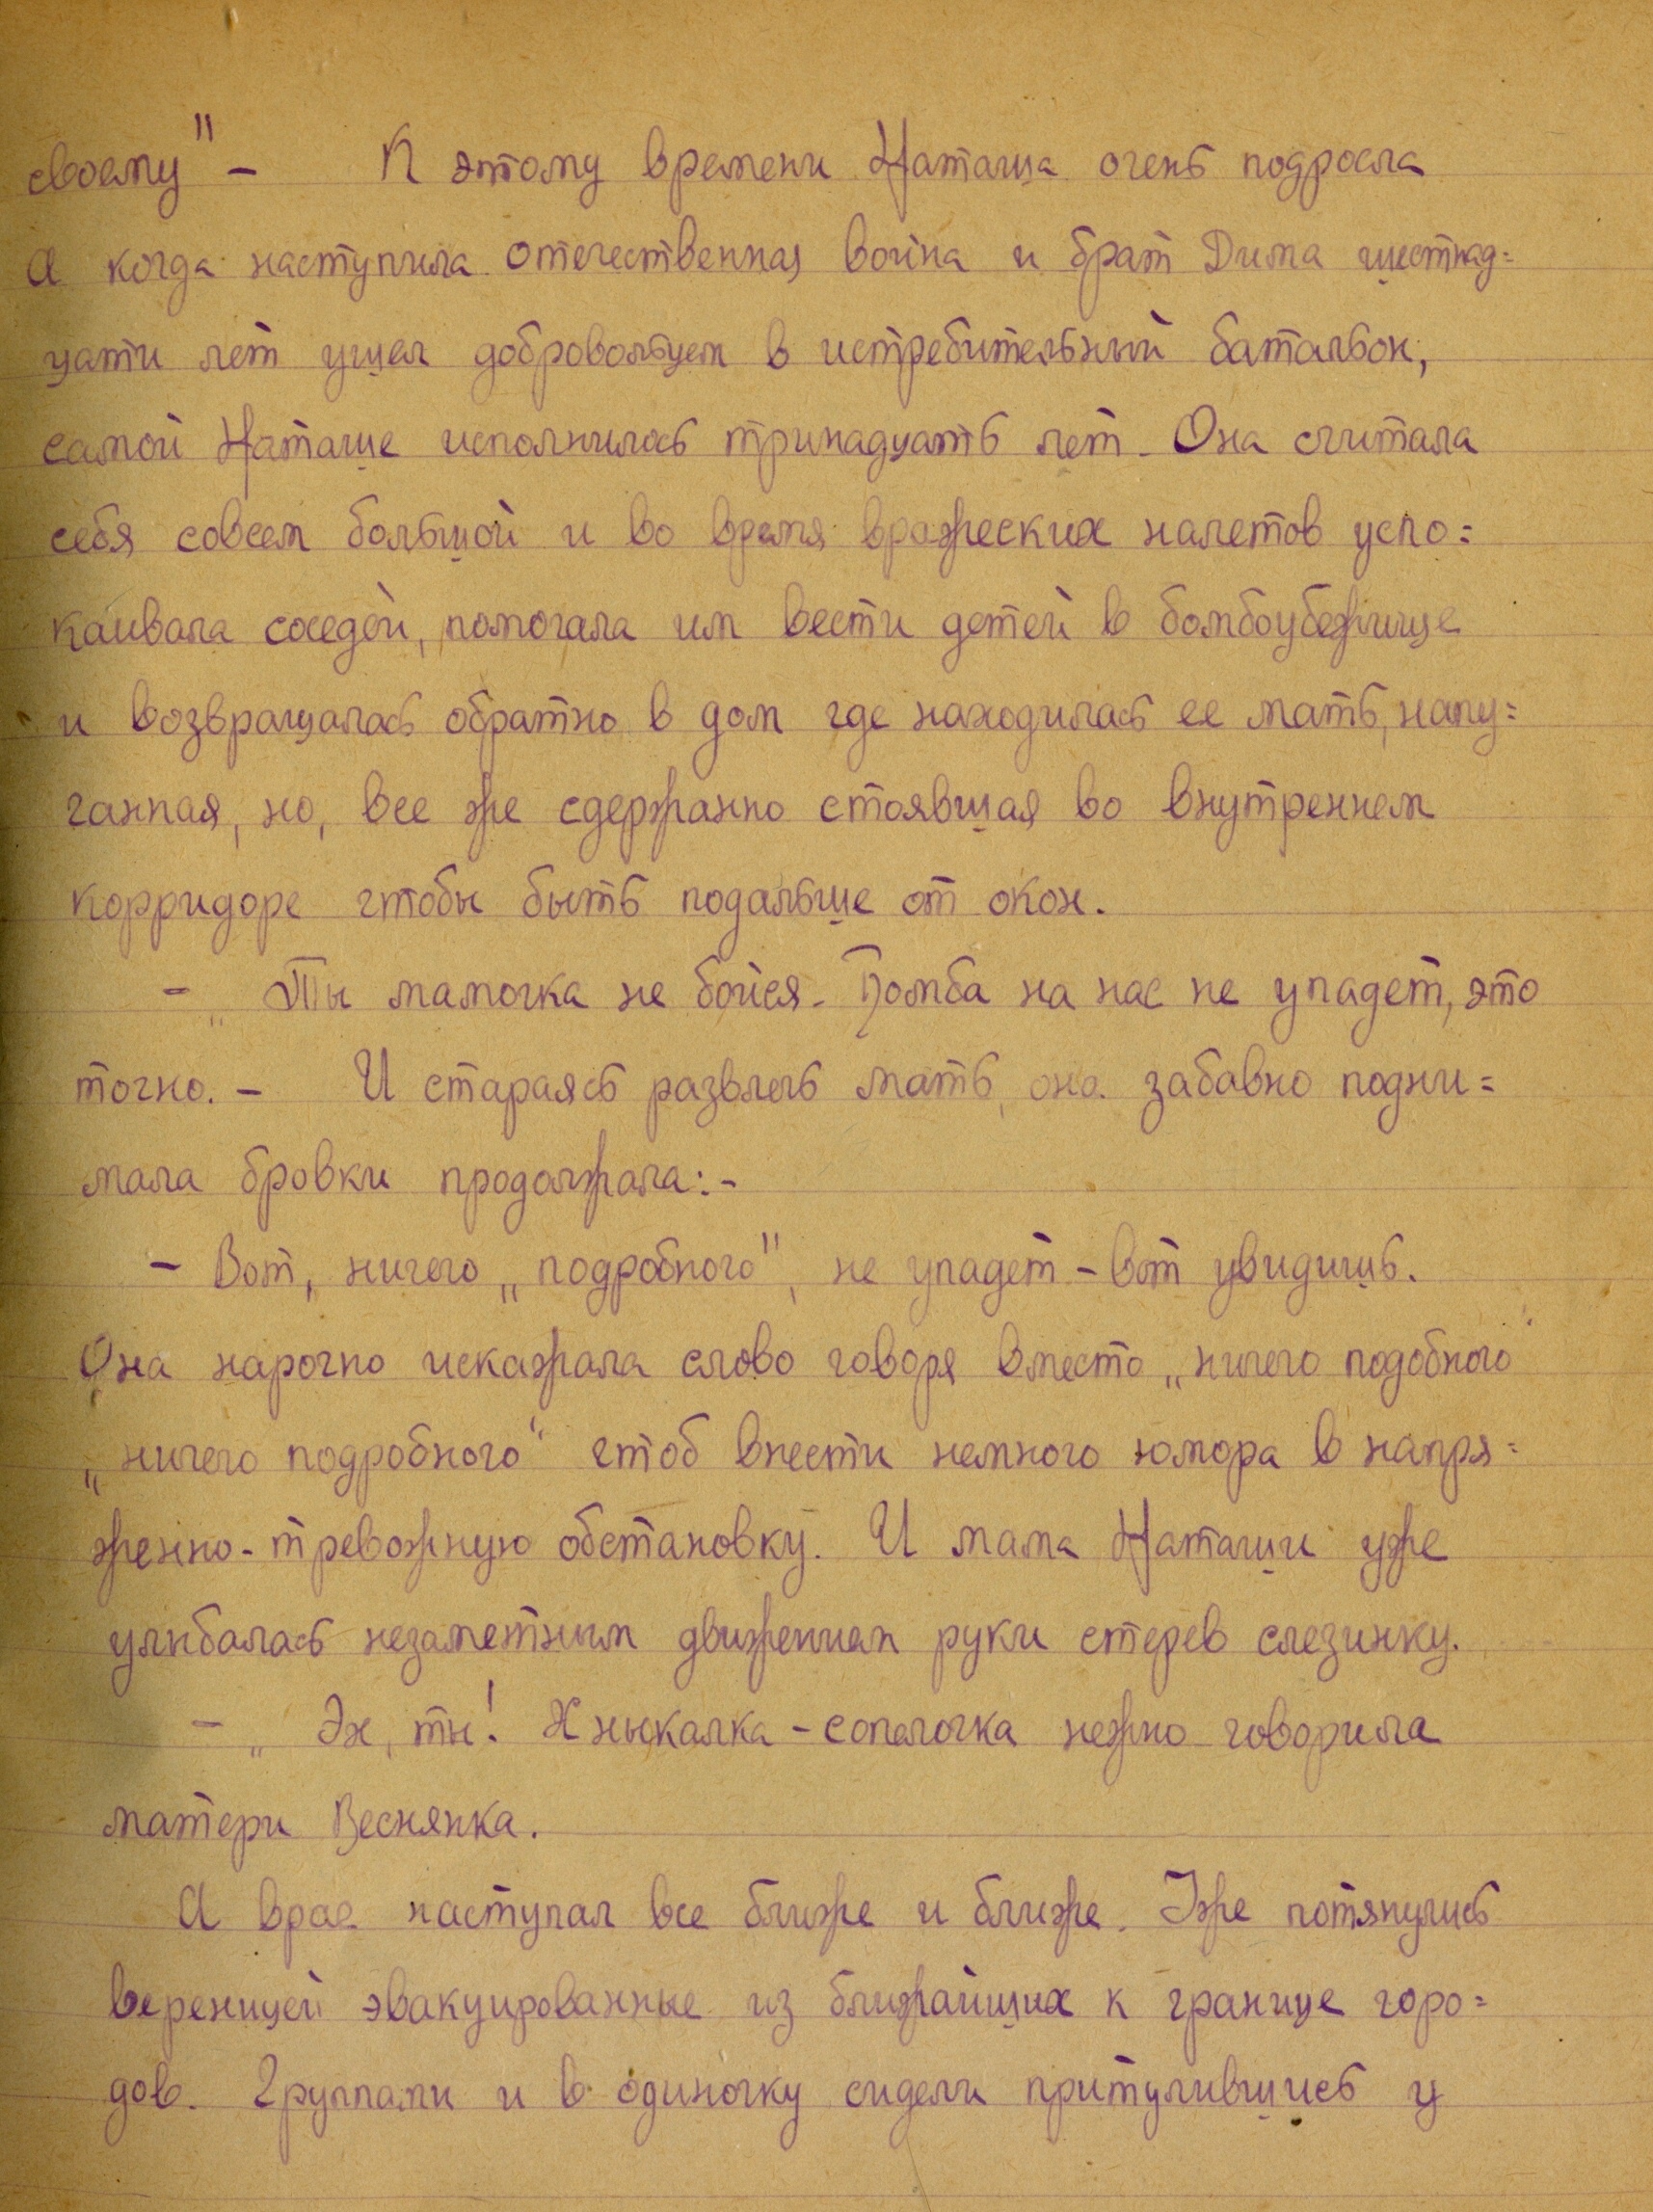 своему" – К этому времени Наташа очень подросла
А когда наступила отечественная война и брат Дима шестнад=
цати лет ушел добровольцем в истребительный батальон,
самой Наташе исполнилось тринадцать лет. Она считала
себя совсем большой и во время вражеских налетов успо=
каивала соседей, помогала им вести детей в бомбоубежище
и возвращалась обратно в дом где находилась ее мать, напу=
ганная, но, все же сдержанно стоявшая во внутреннем
корридоре чтобы быть подальше от окон.
– „Ты мамочка не бойся. Бомба на нас не упадет, это
точно. – И стараясь развлечь мать, она забавно подни=
мала бровки продолжала: –
– Вот, ничего „подробного", не упадет – вот увидишь.
Она нарочно искажала слово говоря вместо „ничего подобного"
„ничего подробного" чтоб внести немного юмора в напря=
женно-тревожную обстановку. И мама Наташи уже
улыбалась незаметным движением руки стерев слезинку.
– „Эх, ты! Хныкалка-сопелочка нежно говорила
матери Веснянка.
А враг наступал все ближе и ближе. Уже потянулись
вереницей эвакуированные из ближайших к границе горо=
дов. Группами и в одиночку сидели притулившись у